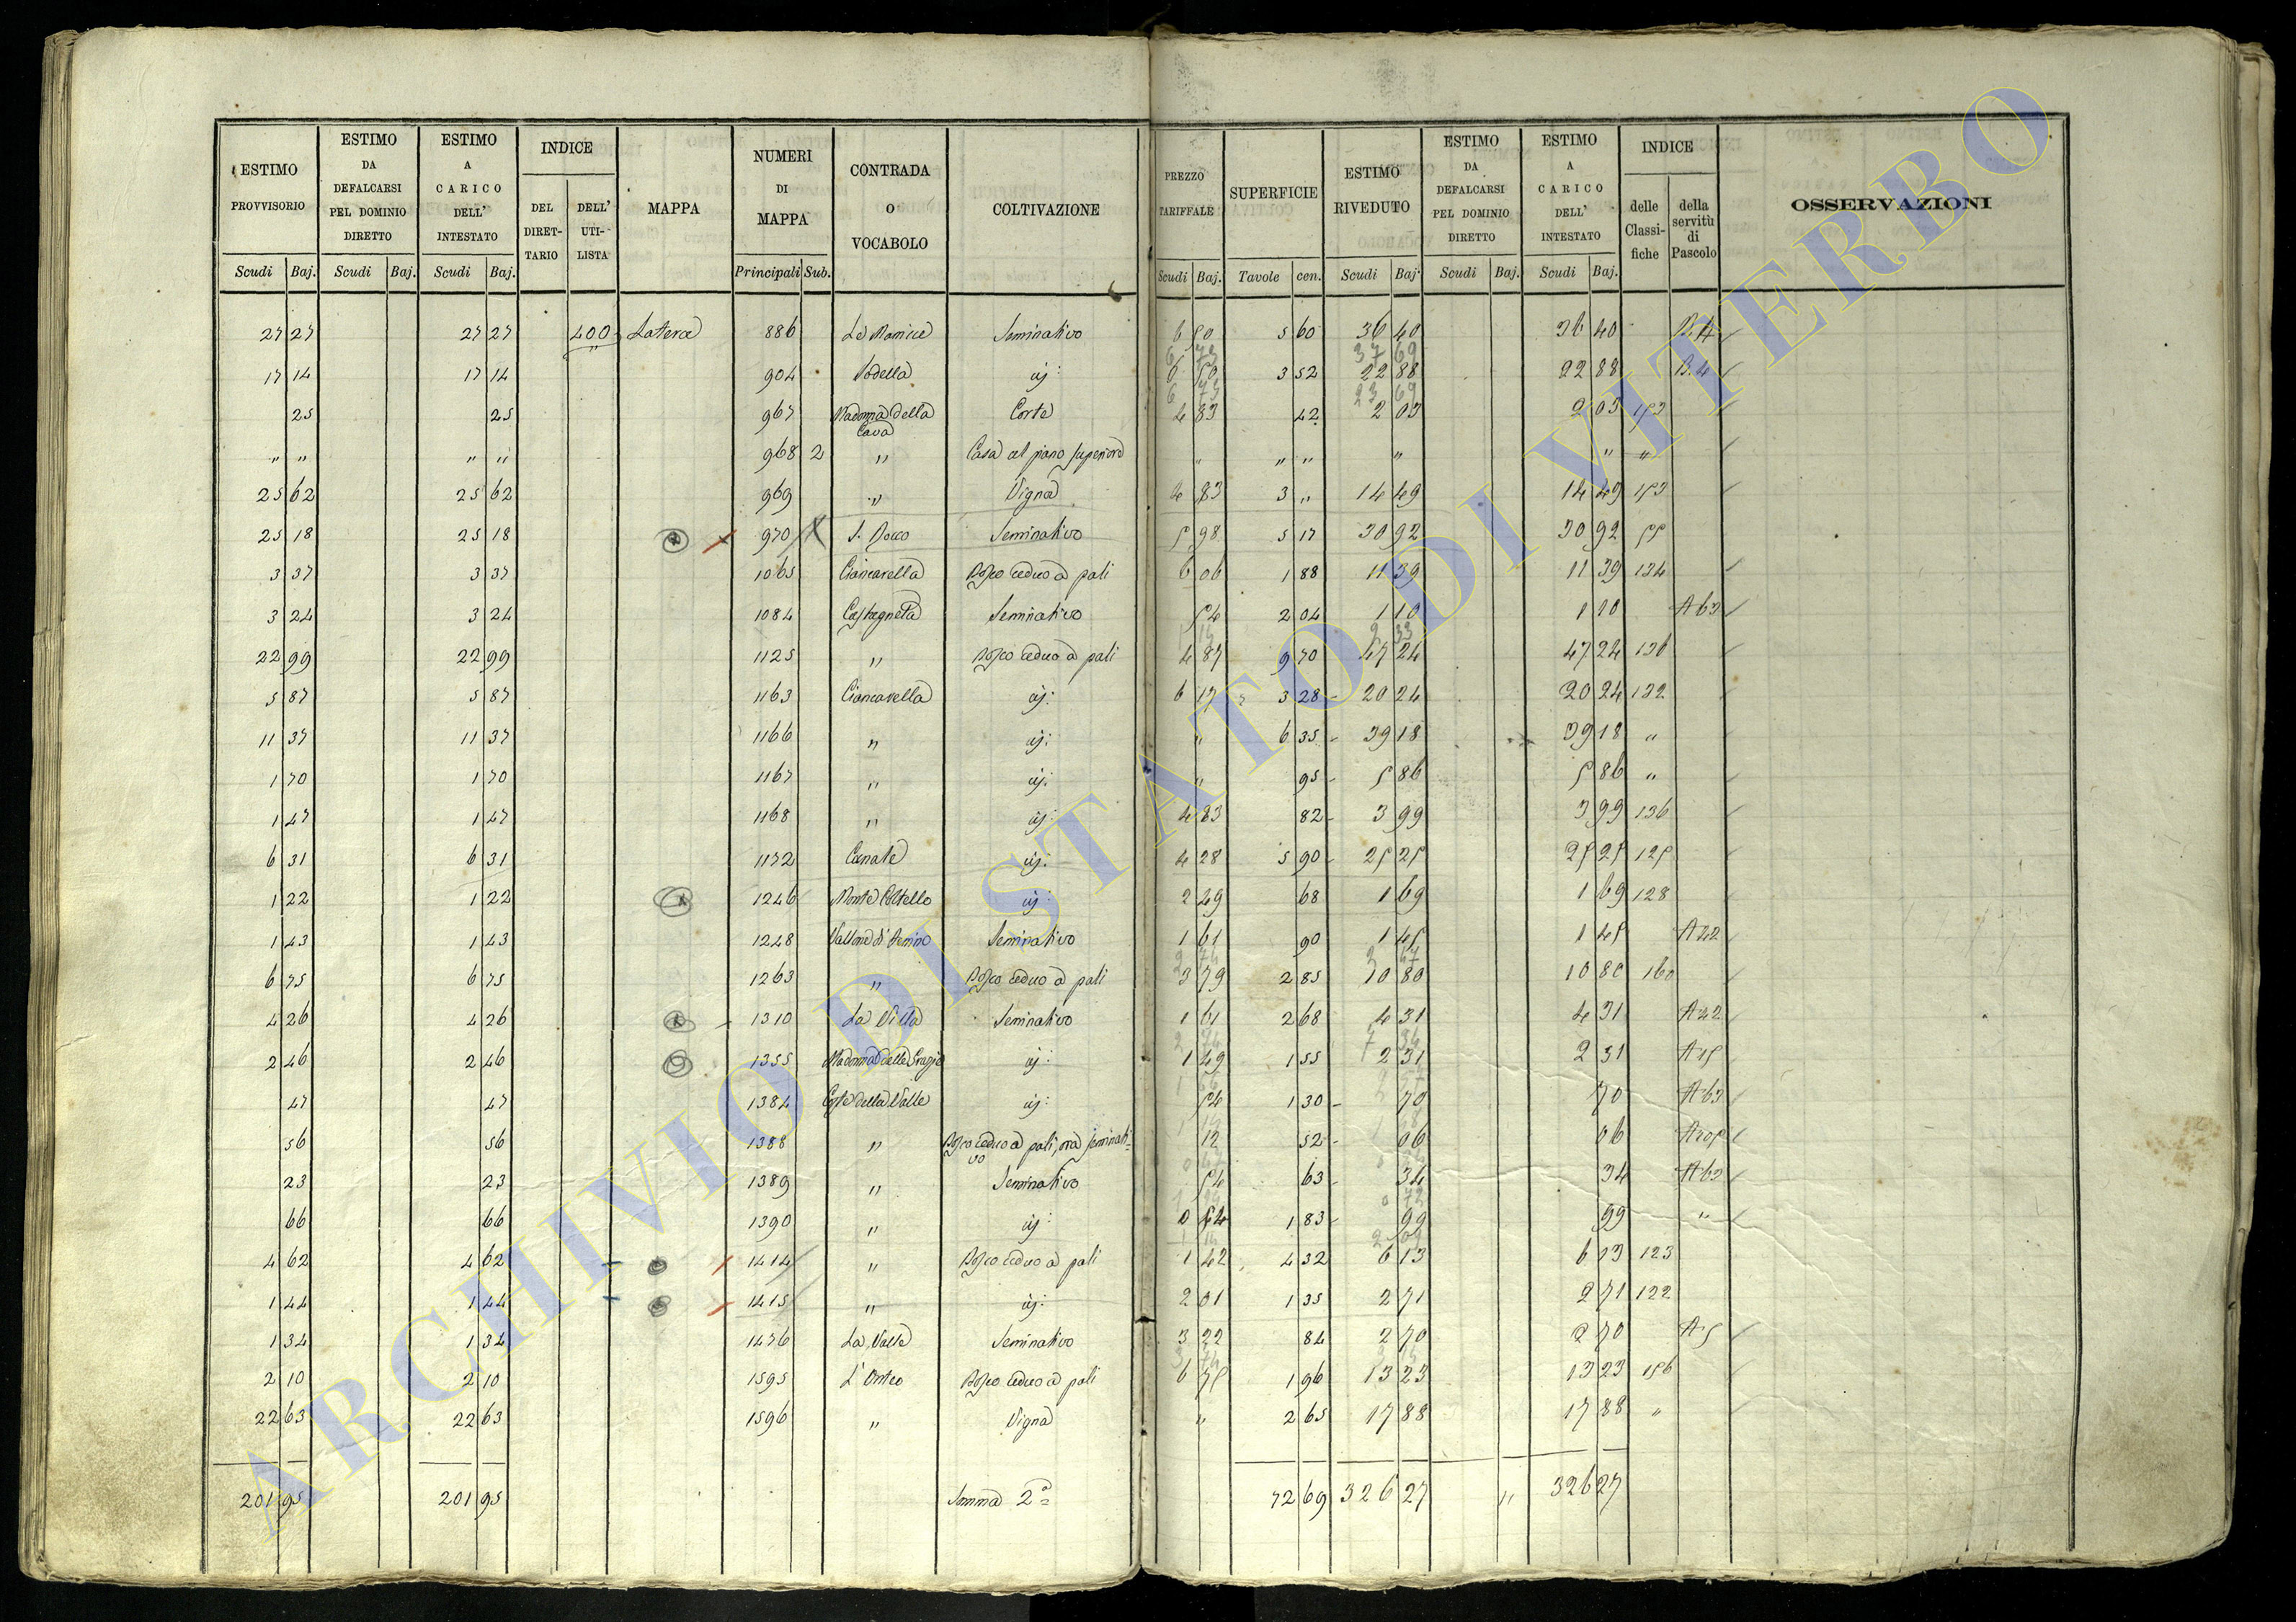 ESTIMO PROVVISORIO Scudi Baj. | ESTIMO DA DEFALCARSI PEL DOMINIO DIRETTO Scudi Baj. | ESTIMO A CARICO DELL' INTESTATO Scudi Baj. | INDICE DEL DIRETTARIO DELL' UTILISTA | MAPPA | NUMERI DI MAPPA Principali Sub. | CONTRADA O VOCABOLO | COLTIVAZIONE | PREZZO TARIFFALE Scudi Baj. | SUPERFICIE Tavole cen. | ESTIMO RIVEDUTO Scudi Baj. | ESTIMO DA DEFALCARSI PEL DOMINIO DIRETTO Scudi Baj. | ESTIMO A CARICO DELL' INTESTATO Scudi Baj. | INDICE delle Classifiche della servitù di Pascolo | OSSERVAZIONI
27 27 27 27 400 Latera 886 Seminativo 6 50 5 60 36 40 36 40
17 14 17 14 904 id: 6 50 3 52 22 88 22 88 B.4
25 25 967 Madonna della Cava Corte 4 83 42 2 03 2 03 153
" " " " 968 2 " Casa al piano superiore " " " " " "
25 62 25 62 969 " Vigna 4 83 3 " 14 49 14 49 153
25 18 25 18 970 S. Rocco Seminativo 5 98 5 17 30 92 30 92 55
3 37 3 37 1065 Ciancarella Bosco ceduo a pali 6 06 1 88 11 39 11 39 134
3 24 3 24 1084 Castagneta Seminativo 54 2 04 1 10 1 10 A 63
22 99 22 99 1125 " Bosco ceduo a pali 4 87 9 70 47 24 47 24 136
5 87 5 87 1163 Ciancarella id: 6 17 3 28 20 24 20 24 132
11 37 11 37 1166 " id: " 6 35 39 18 39 18 "
1 70 1 70 1167 " id: " 95 5 86 5 86 "
1 47 1 47 1168 " id: 4 83 82 3 99 3 99 136
6 31 6 31 1172 Canale id: 4 28 5 90 25 25 25 25 125
1 22 1 22 1246 id: 2 49 68 1 69 1 69 128
1 43 1 43 1248 Seminativo 1 61 90 1 45 1 45 A 42
6 75 6 75 1263 " Bosco ceduo a pali 3 79 2 85 10 80 10 80 160
4 26 4 26 1310 La Villa Seminativo 1 61 2 68 4 31 4 31 A 42
2 46 2 46 1355 Madonna delle Grazie id: 1 49 1 55 2 31 2 31
47 47 1384 Coste della Valle id: 54 1 30 70 70 A 63
56 56 1388 " Bosco ceduo a pali, ora seminativo 12 52 06 06
23 23 1389 " Seminativo 54 63 34 34 A 63
66 66 1390 " id: 0 54 1 83 99 99 "
4 62 4 62 1414 " Bosco ceduo a pali 1 42 4 32 6 13 6 13 123
1 44 1 44 1415 " id: 2 01 1 35 2 71 2 71 122
1 34 1 34 1476 La Valle Seminativo 3 22 84 2 70 2 70 A 5
2 10 2 10 1595 Bosco ceduo a pali 6 75 1 96 13 23 13 23 156
22 63 22 63 1596 " Vigna " 2 65 17 88 17 88 "
201 95 201 95 Somma 2ª 72 69 326 27 " 326 27
ARCHIVIO DI STATO DI VITERBO